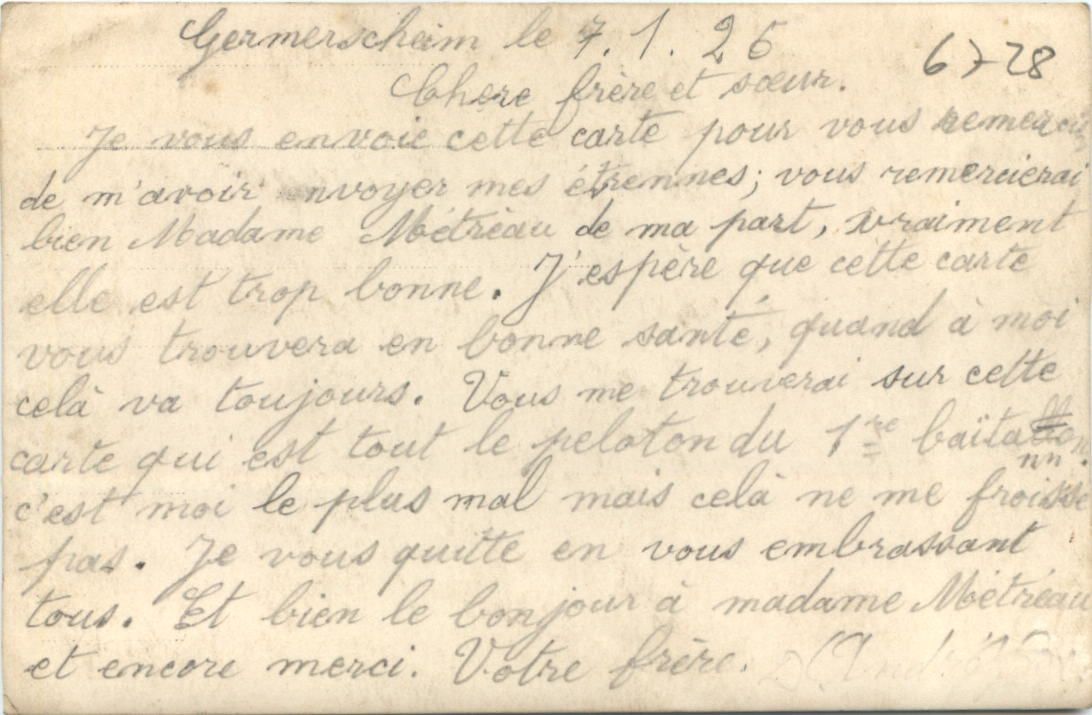 Germerscheim le 7.1.26
6728
Chere frère et sœur.
Je vous envoie cette carte pour vous remercier
de m'avoir envoyer mes étrennes; vous remercierai
bien Madame Métréau de ma part, vraiment
elle est trop bonne. J'espère que cette carte
vous trouvera en bonne santé, quand à moi
celà va toujours. Vous me trouverai sur cette
carte qui est tout le peloton du 1re
c'est moi le plus mal mais celà ne me froisse
pas. Je vous quitte en vous embrassant
tous. Et bien le bonjour à madame Métréau
et encore merci. Votre frère. André